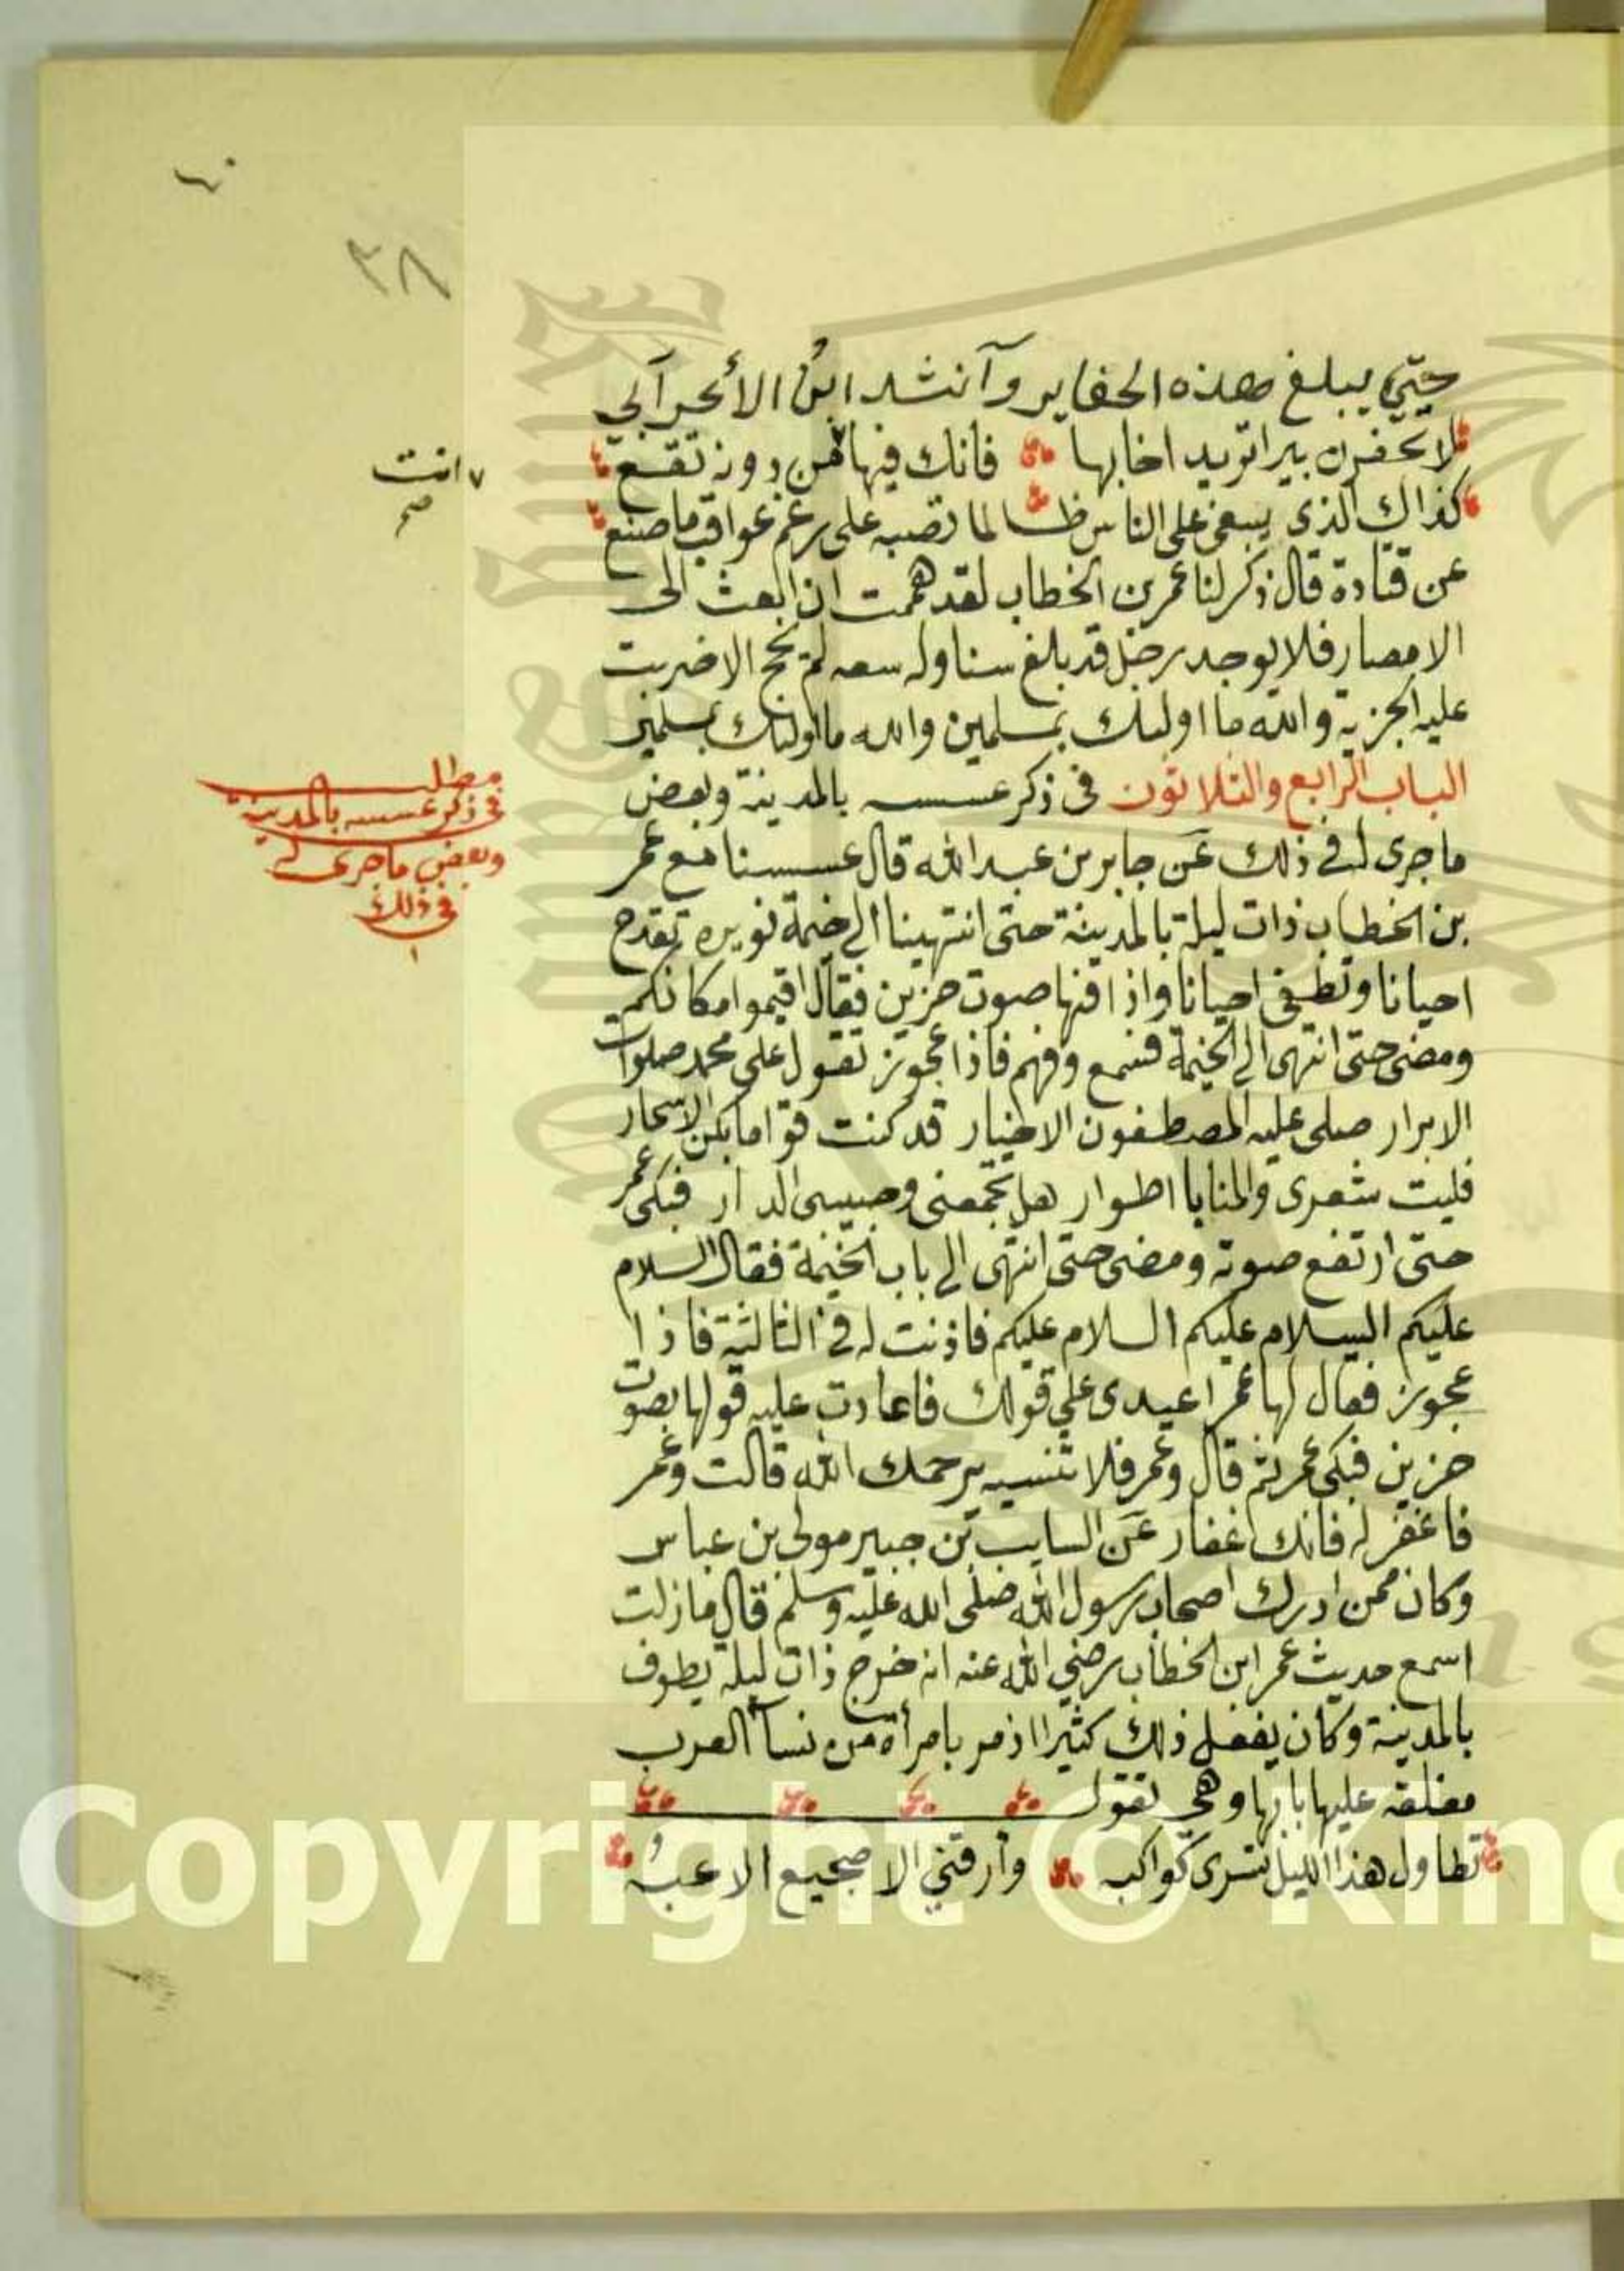 ٤٠
٣٨
حتى يبلغ هذه الحفاير وأنشد ابن الأعرابي
لا تحفرن بيرا تريد اخا بها فانك فيها من دونه تقع
انت صح
كذاك الذى يبغى على الناس ظالما تصبه على رغم عواقب ما صنع
عن قتادة قال ذكر لنا عمر بن الخطاب لقد هممت ان ابعث الى
الامصار فلا يوجد رجل قد بلغ سنا وله سعه لم يحج الا ضربت
عليه الجزية والله ما اولئك بمسلمين والله ما اولئك بمسلمين
الباب الرابع والثلاثون فى ذكر عسسه بالمدينة وبعض
مطلب
فى ذكر عسسه بالمدينة
وبعض ما جرى له
فى ذلك
ما جرى له في ذلك عن جابر بن عبد الله قال عسسنا مع عمر
بن الخطاب ذات ليلة بالمدينة حتى انتهينا الى خيمة نويره تقدح
احيانا وتطفى احيانا واذا فيها صوت حزين فقال اقيموا مكانكم
ومضى حتى انتهى الى الخيمة فسمع وفهم فاذا عجوز تقول على محمد صلوات
الابرار صلى عليه المصطفون الاخيار قد كنت قواما بكى الاسحار
فليت شعرى والمنايا اطوار هل تجمعنى وحبيبى الدار فبكى عمر
حتى ارتفع صوته ومضى حتى انتهى الى باب الخيمة فقال السلام
عليكم السلام عليكم السلام عليكم فاذنت له في الثالثة فاذا
عجوز فقال لها عمر اعيدى على قولك فاعادت عليه قولها بصوت
حزين فبكى عمر ثم قال وعمر فلا تنسيه يرحمك الله قالت وعمر
فاغفر له فانك غفار عن السايب بن جبير مولى بن عباس
وكان ممن ادرك اصحاب رسول الله صلى الله عليه وسلم قال ما زلت
اسمع حديث عمر ابن الخطاب رضي الله عنه انه خرج ذات ليلة يطوف
بالمدينة وكان يفعل ذلك كثيرا اذ مر بامرأة من نسآ العرب
مغلقه عليها بابها وهي تقول
تطاول هذا الليل تسرى كواكبه وأرقني الا ضجيع الاعبهُ
Copyright © King